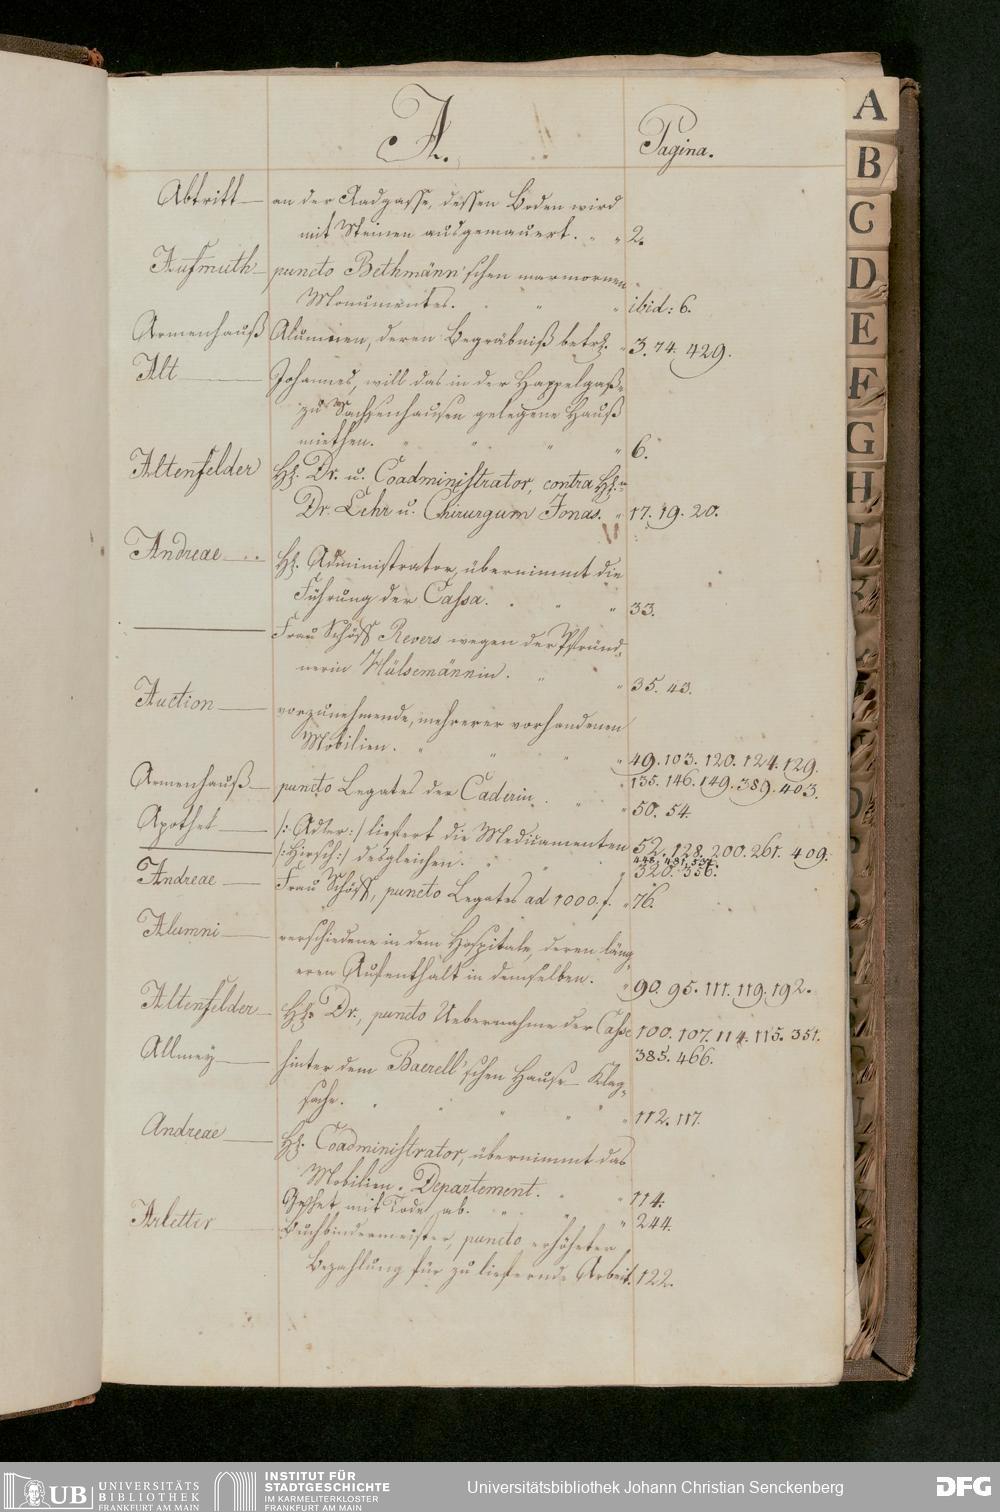 A.
Pagina.
Abtritt — an der Radgasse, dessen Boden wird
mit Steinen ausgemauert. " " 2.
Aufmuth — puncto Bethmänn'schen marmornen
Monumentes. " " ibid: 6.
Armenhauß Alumnen, deren Begräbniß betrf. " 3. 74. 429.
Alt — Johannes, will das in der Happelgaß
zu Sachsenhausen gelegene Hauß
miethen. " " " " 6.
Altenfelder H. Dr. u. Coadministrator, contra H.
Dr. Lehr u. Chirurgum Jonas. " 17. 19. 20.
Andreae — H. Administrator, übernimmt die
Führung der Cassa. " " " 33.
— Frau Schöff Revers wegen der Pfründ-
nerin Hülsemännin. " " 35. 43.
Auction — vorzunehmende, mehrerer vorhandenen
Mobilien. " " " " 49. 103. 120. 124. 129.
135. 146. 149. 389. 403.
Armenhauß — puncto Legates der Caderin. " " 50. 54.
Apothek — /: Adler :/ liefert die Medicamenten 52. 128. 200. 261. 409.
448. 481. 537.
— /: Hirsch :/ desgleichen. " " 320. 356.
Andreae — Frau Schöff, puncto Legates ad 1000 f. " 76.
Alumni — verschiedene in dem Hospitale, deren läng-
eren Aufenthalt in demselben. " 90. 95. 111. 119. 192.
Altenfelder — H. Dr., puncto Uebernahme der Casse 100. 107. 114. 115. 351.
385. 466.
Allmey — hinter dem Baerell'schen Hause Klag-
sache. " " " " 112. 117.
Andreae — H. Coadministrator, übernimmt das
Mobilien-Departement. " " 114.
Gehet mit Tode ab. " " " 244.
Arletter Buchbindermeister, puncto erhöheter
Bezahlung für zu liefernde Arbeit. 122.
A
B
C
D
E
F
G
H
I
UB
UNIVERSITÄTS
BIBLIOTHEK
FRANKFURT AM MAIN
INSTITUT FÜR
STADTGESCHICHTE
IM KARMELITERKLOSTER
FRANKFURT AM MAIN
Universitätsbibliothek Johann Christian Senckenberg
DFG